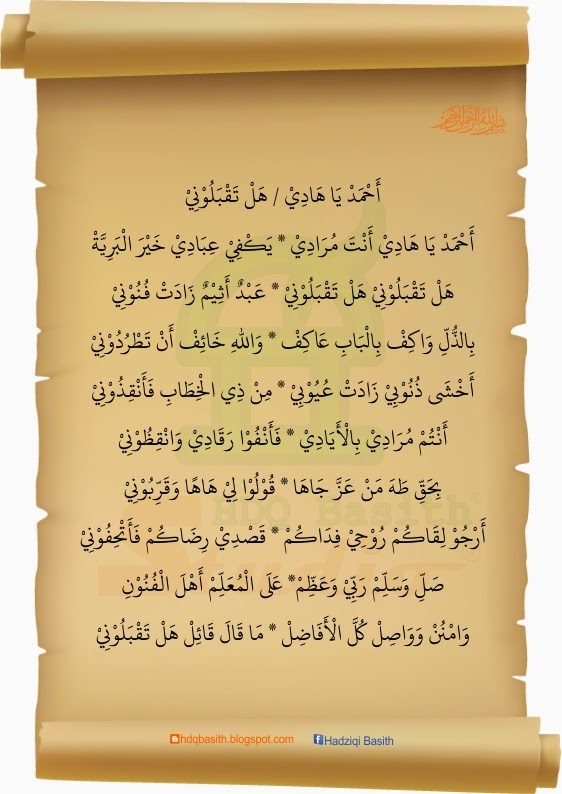 بسم الله الرحمن الرحيم
أَحْمَدْ يَا هَادِيْ / هَلْ تَقْبَلُوْنِيْ
أَحْمَدْ يَا هَادِيْ أَنْتَ مُرَادِيْ * يَكْفِيْ عِبَادِيْ خَيْرَ الْبَرِيَّةْ
هَلْ تَقْبَلُوْنِيْ هَلْ تَقْبَلُوْنِيْ * عَبْدٌ أَثِيْمٌ زَادَتْ فُنُوْنِيْ
بِالذُّلِّ وَاكِفْ بِالْبَابِ عَاكِفْ * وَاللهِ خَائِفْ أَنْ تَطْرُدُوْنِيْ
أَخْشَى ذُنُوْبِيْ زَادَتْ عُيُوْبِيْ * مِنْ ذِي الْخِطَابِ فَأَنْقِذُوْنِيْ
أَنْتُمْ مُرَادِيْ بِالْأَيَادِيْ * فَأَنْفُوْا رَقَادِيْ وَانْقِظُوْنِيْ
بِحَقِّ طَهَ مَنْ عَزَّ جَاهَا * قُوْلُوْا لِيْ هَاهَا وَقَرِّبُوْنِيْ
أَرْجُوْ لِقَاكُمْ رُوْحِيْ فِدَاكُمْ * قَصْدِيْ رِضَاكُمْ فَأَتْحِفُوْنِيْ
صَلِّ وَسَلِّمْ رَبِّيْ وَعَظِّمْ* عَلَى الْمُعَلِّمْ أَهْلَ الْفُنُوْنِ
وَامْنُنْ وَوَاصِلْ كُلَّ الْأَفَاضِلْ * مَا قَالَ قَائِلْ هَلْ تَقْبَلُوْنِيْ
HDQ Basith
hdqbasith.blogspot.com Hadziqi Basith